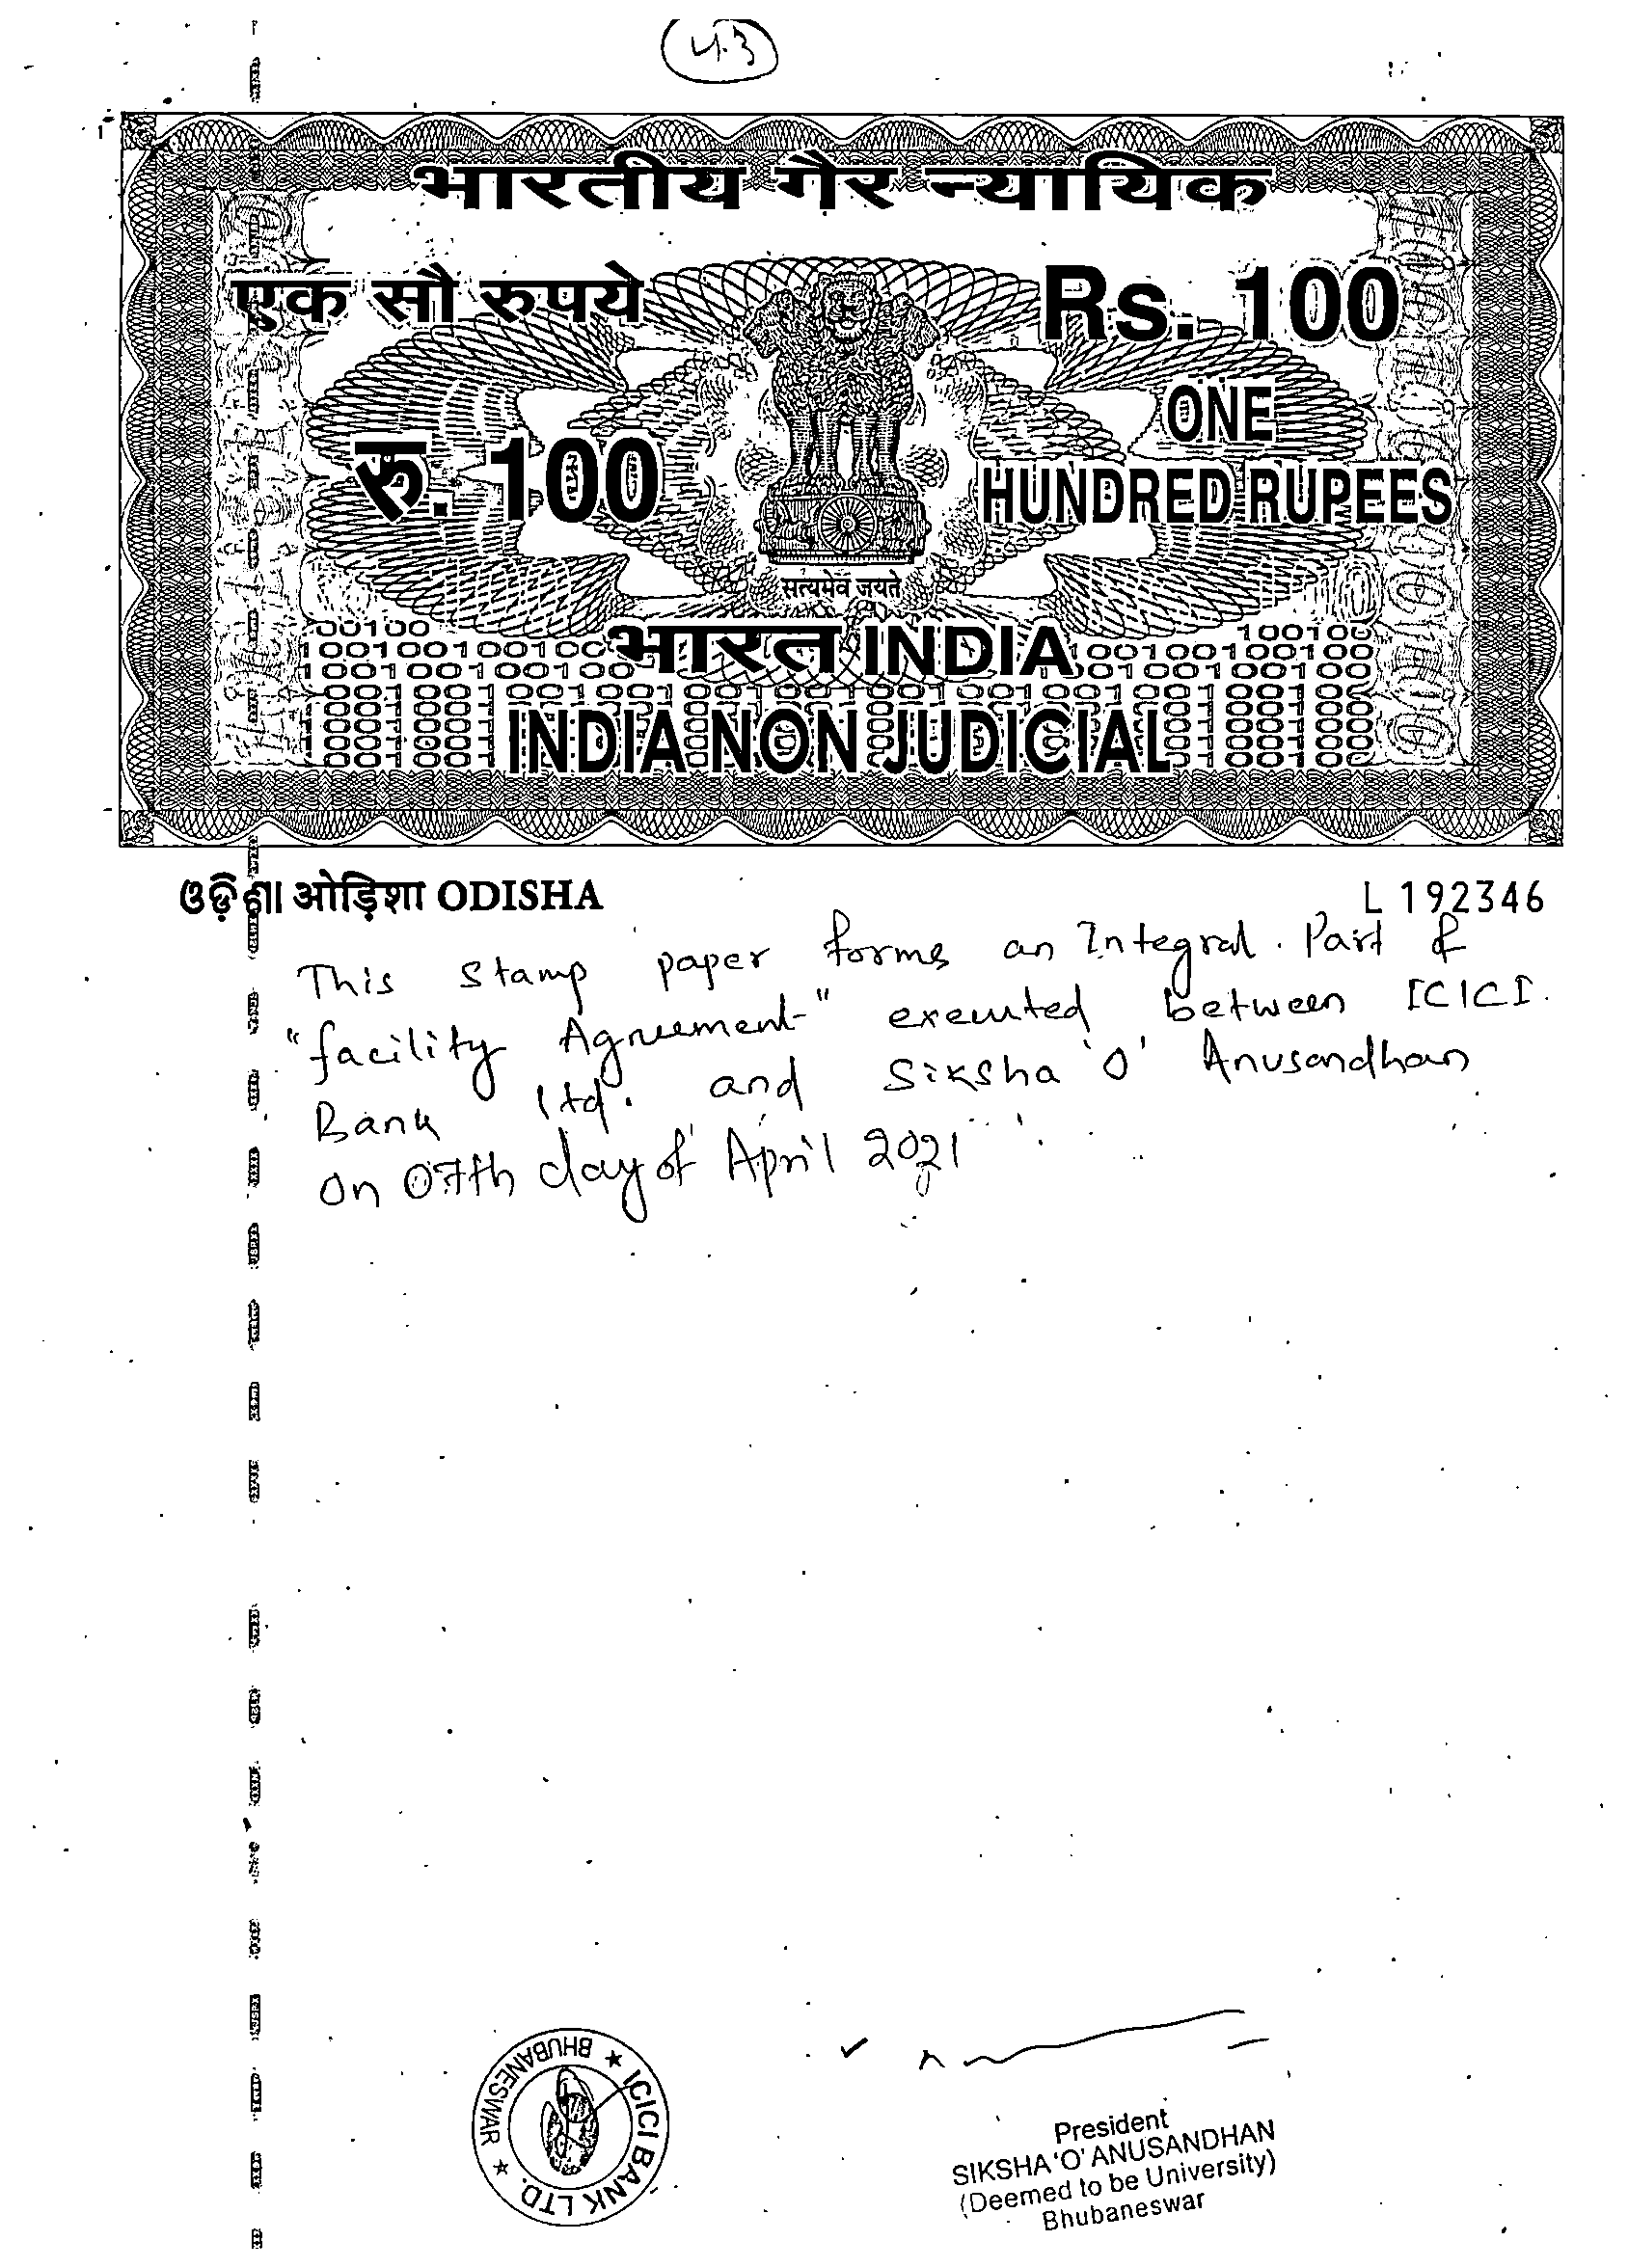 43
भारतीय गैर न्यायिक
एक सौ रुपये
Rs. 100
रु. 100
ONE
HUNDRED RUPEES
सत्यमेव जयते
भारत INDIA
INDIA NON JUDICIAL
ଓଡ଼ିଶା ओड़िशा ODISHA
L 192346
This stamp paper forms an Integral Part of
"facility Agreement" executed between ICICI
Bank Ltd. and Siksha 'O' Anusandhan
on 07th day of April 2021
ICICI BANK LTD. ★ BHUBANESWAR ★
President
SIKSHA 'O' ANUSANDHAN
(Deemed to be University)
Bhubaneswar